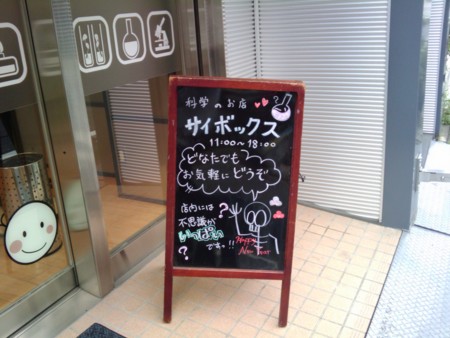 科学のお店
サイボックス
11:00〜18:00
どなたでも
お気軽にどうぞ
店内には
不思議が
いっぱい
です。!!
?
?
Happy
New Year